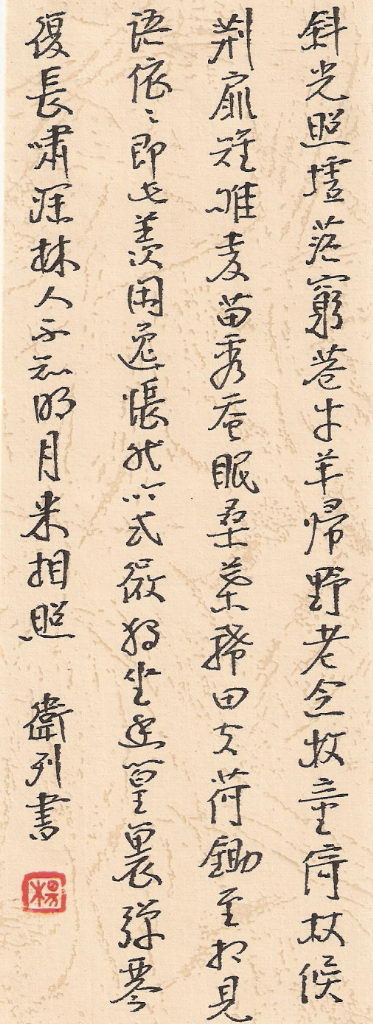 斜光照墟落窮巷牛羊歸野老念牧童倚杖候
荊扉雉雊麥苗秀蚕眠桑葉稀田夫荷鋤至相見
語依〻即此羨閑逸悵然吟式微独坐幽篁裏彈琴
復長嘯深林人不知明月来相照
衛列書
楊